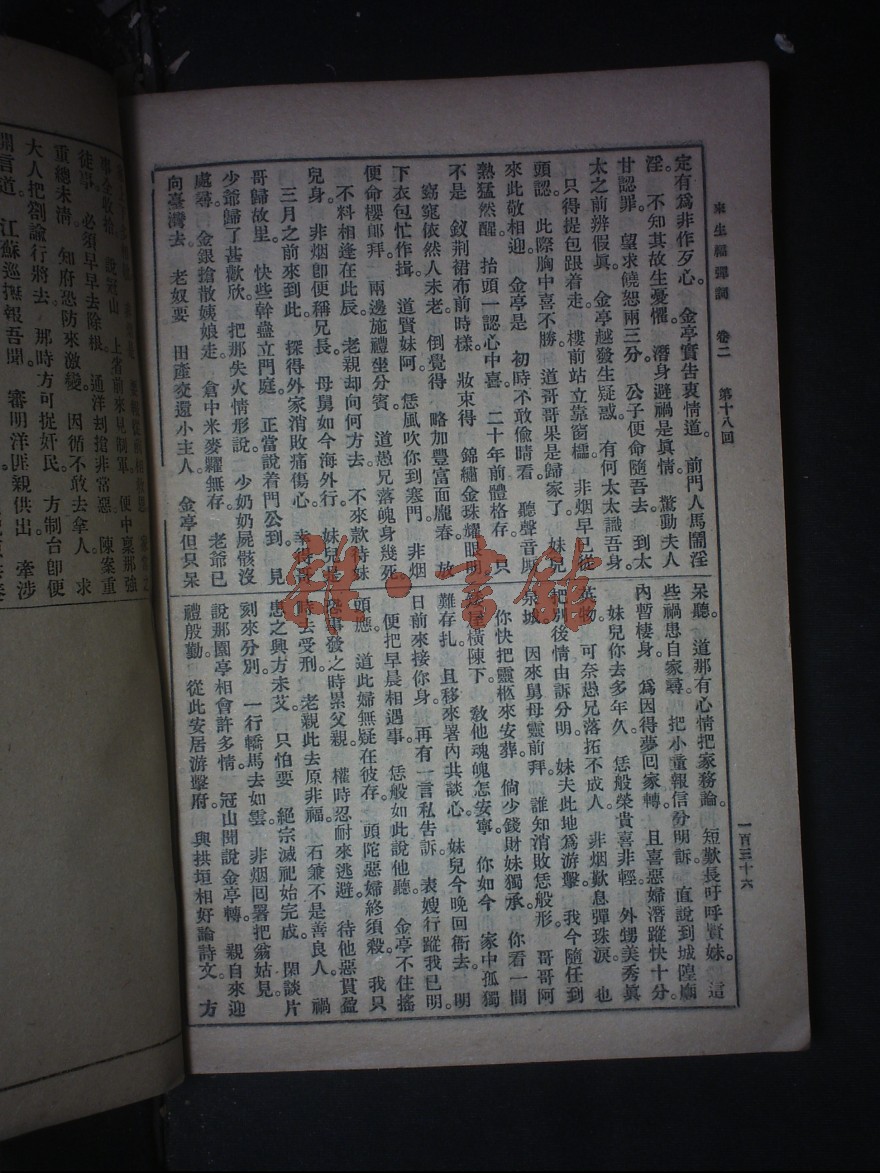 來生福彈詞　卷二　第十八回
一百三十六
定有爲非作歹心。　金亭實告衷情道。　前門人馬鬧淫
淫。　不知其故生憂懼。　潛身避禍是眞情。　驚動夫人
甘認罪。　望求饒恕兩三分。　公子便命隨吾去。　到太
太之前辨假眞。　金亭越發生疑惑。　有何太太識吾身。
只得提包跟着走。　樓前站立靠窗檽。　非烟早已從
頭認。　此際胸中喜不勝。　道哥哥果是歸家了。　妹兒
來此敬相迎。　金亭是　初時不敢偷睛看。　聽聲音
熟猛然醒。　抬頭一認心中喜。　二十年前體格存。　只
不是　釵荆裙布前時樣　妝束得　錦繡金珠耀眼明
窈窕依然人未老。　倒覺得　略加豐富面龐春。　放
下衣包忙作揖。　道賢妹阿。　恁風吹你到寒門。　非烟
便命櫻郎拜。　兩邊施禮坐分賓。　道愚兄落魄身幾死。
不料相逢在此辰。　老親却向何方去。　不來款待妹
兒身。　非烟卽便稱兄長。　母舅如今海外行。　妹兒是
三月之前來到此。　探得外家消敗痛傷心。　幸得哥
哥歸故里。　快些幹蠱立門庭。　正當說着門公到。　見
少爺歸了甚歡欣。　把那失火情形說。　少奶奶屍骸沒
處尋。　金銀搶散姨娘走。　倉中米麥糶無存。　老爺已
向臺灣去。　老奴要　田產交還小主人　金亭但只呆
呆聽。　道那有心情把家務論。　短歎長吁呼賢妹。　這
些禍患自家尋。　把小童報信分明訴。　直說到城隍廟
內暫棲身。　爲因得夢回家轉。　且喜惡婦潛蹤快十分。
妹兒你去多年久。　恁般榮貴喜非輕。　外甥美秀眞
英物。　可奈愚兄落拓不成人。　非烟歎息彈珠淚。　也
把別後情由訴分明。　妹夫此地爲游擊。　我今隨任到
泉城。　因來舅母靈前拜。　誰知消敗恁般形。　哥哥阿
你快把靈柩來安葬。　倘少錢財妹獨承。　你看一間
尾橫陳下。　敎他魂魄怎安寧。　你如今　家中孤獨
難存扎。　且移來署內共談心。　妹兒今晚回衙去。　明
日前來接你身。　再有一言私告訴。　表嫂行蹤我已明。
便把早晨相遇事。　恁般如此說他聽。　金亭不住搖
頭應。　道此婦無疑在彼存。　頭陀惡婦終須殺。　我只
事發之時累父親。　權時忍耐來逃避。　待他惡貫盈
時去受刑。　老親此去原非福。　石兼不是善良人。　禍
患之興方未艾。　只怕要　絕宗滅祀始完成。　閑談片
刻來分別。　一行轎馬去如雲。　非烟囘署把翁姑見。
說那園亭相會許多情。　冠山聞說金亭轉。　親自來迎
禮般勤。　從此安居游擊府。　與拱垣相好論詩文。　方
說冠山　上省前來見制軍。　便中稟那強
徒事。　必須早早去除根。　通洋刦搶非常惡。　陳案重
重總未清。　知府恐防來激變。　因循不敢去拿人。　求
大人把劄諭行將去。　那時方可捉奸民。　方制台卽便
開言道。　江蘇巡撫報吾聞。　審明洋匪親供出。　牽涉
雜·書館